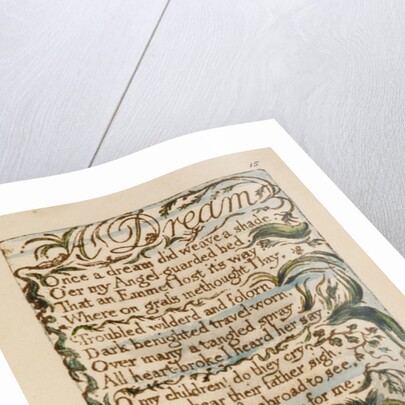 15
A Dream
Once a dream did weave a shade,
O'er my Angel-guarded bed,
That an Emmet lost it's way
Where on grass methought I lay.
Troubled wilderd and folorn
Dark benighted travel-worn,
Over many a tangled spray
All heart-broke I heard her say.
O my children! do they cry,
hear their father sigh.
abroad to see,
for me.